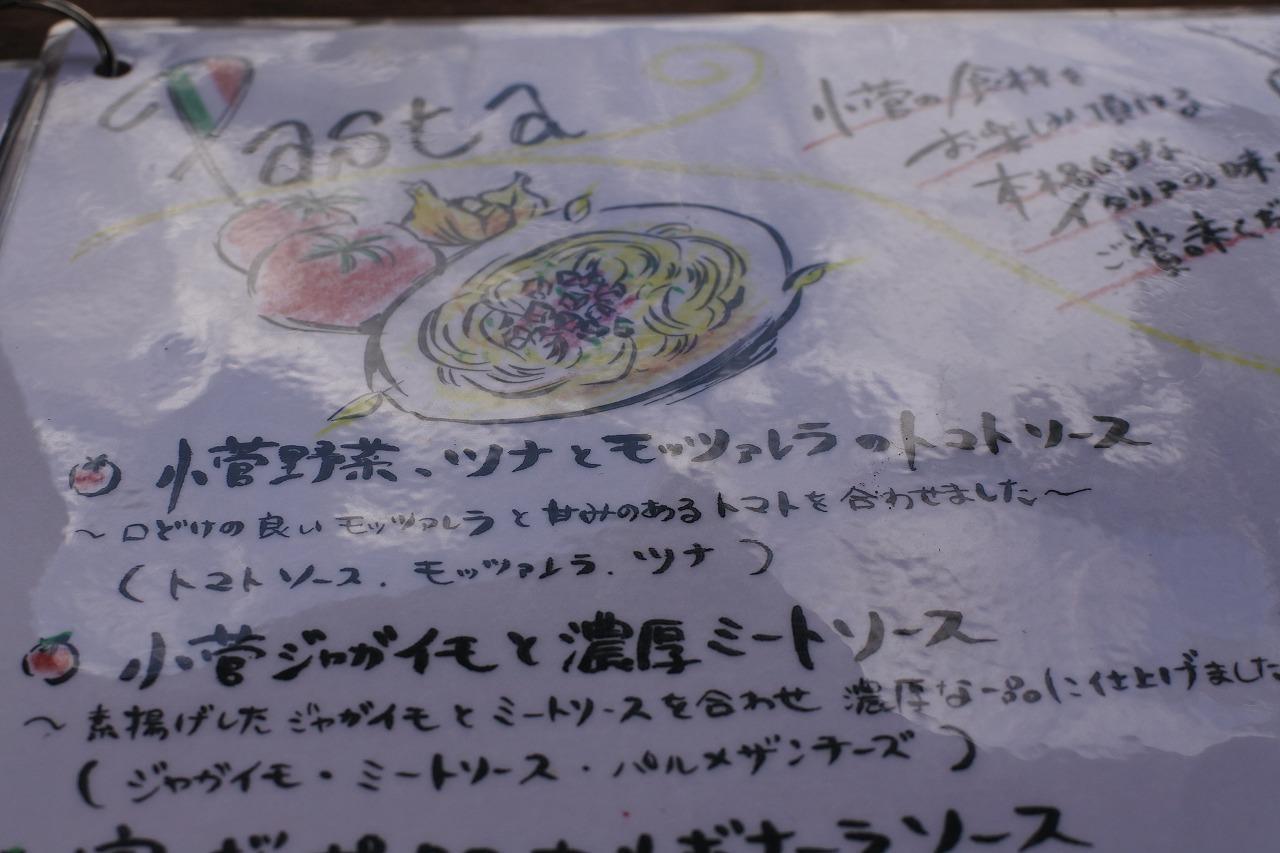 Pasta
小菅の食材を
お楽しみ頂ける
本格的な
イタリアの味
ご賞味くだ
小菅野菜、ツナとモッツァレラのトマトソース
〜口どけの良いモッツァレラと甘みのあるトマトを合わせました〜
(トマトソース.モッツァレラ.ツナ)
小菅ジャガイモと濃厚ミートソース
〜素揚げしたジャガイモとミートソースを合わせ 濃厚な一品に仕上げました
(ジャガイモ・ミートソース・パルメザンチーズ)
カルボナーラソース